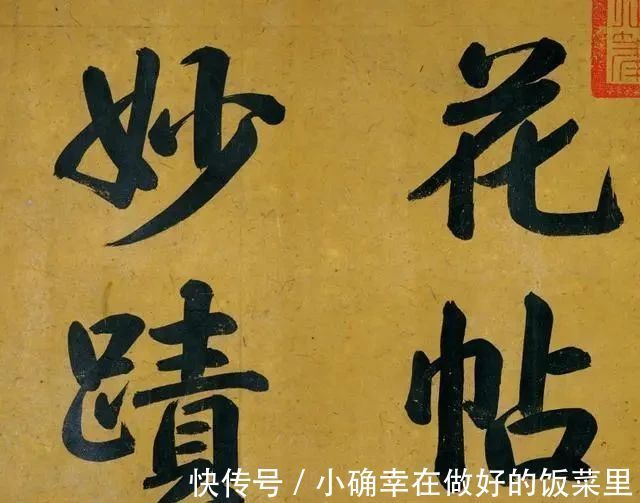 花帖
妙蹟
快传号 / 小确幸在做好的饭菜里